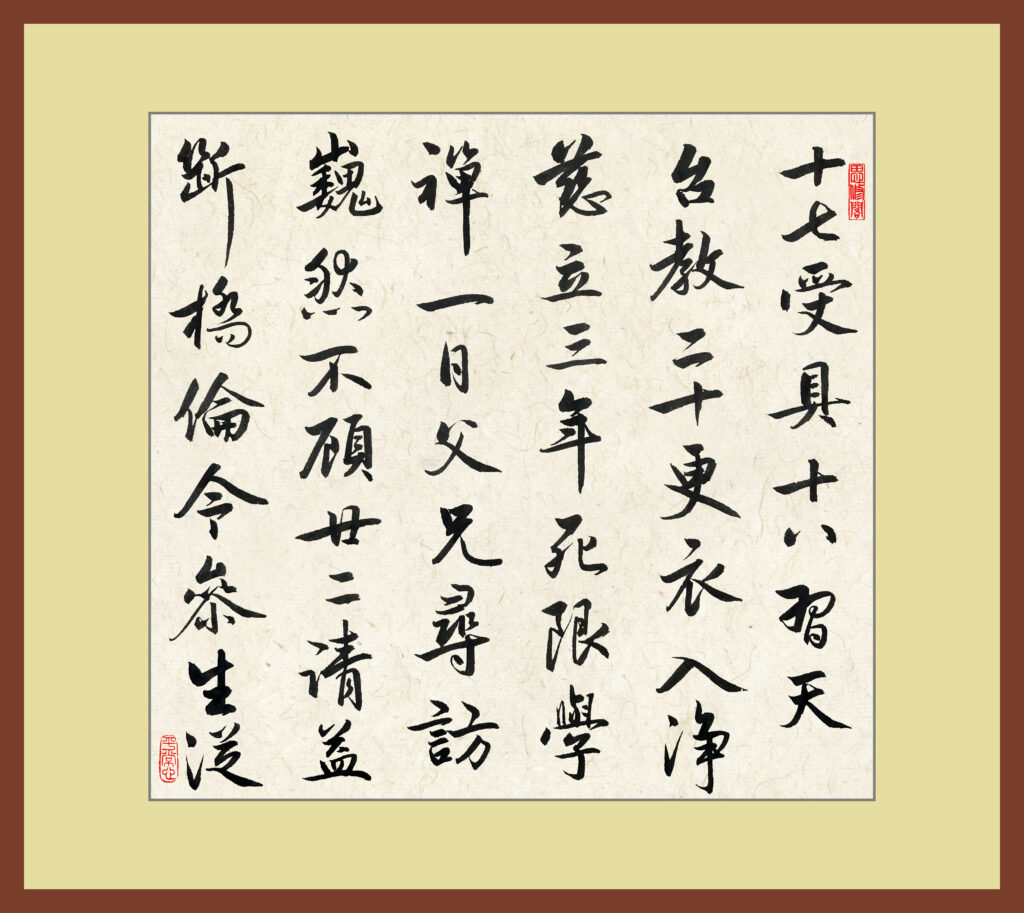 十七受具十八習天
台教二十更衣入淨
慈立三年死限學
禪一日父兄尋訪
巍然不顧廿二請益
斷橋倫令參生從
思修閣
平常心